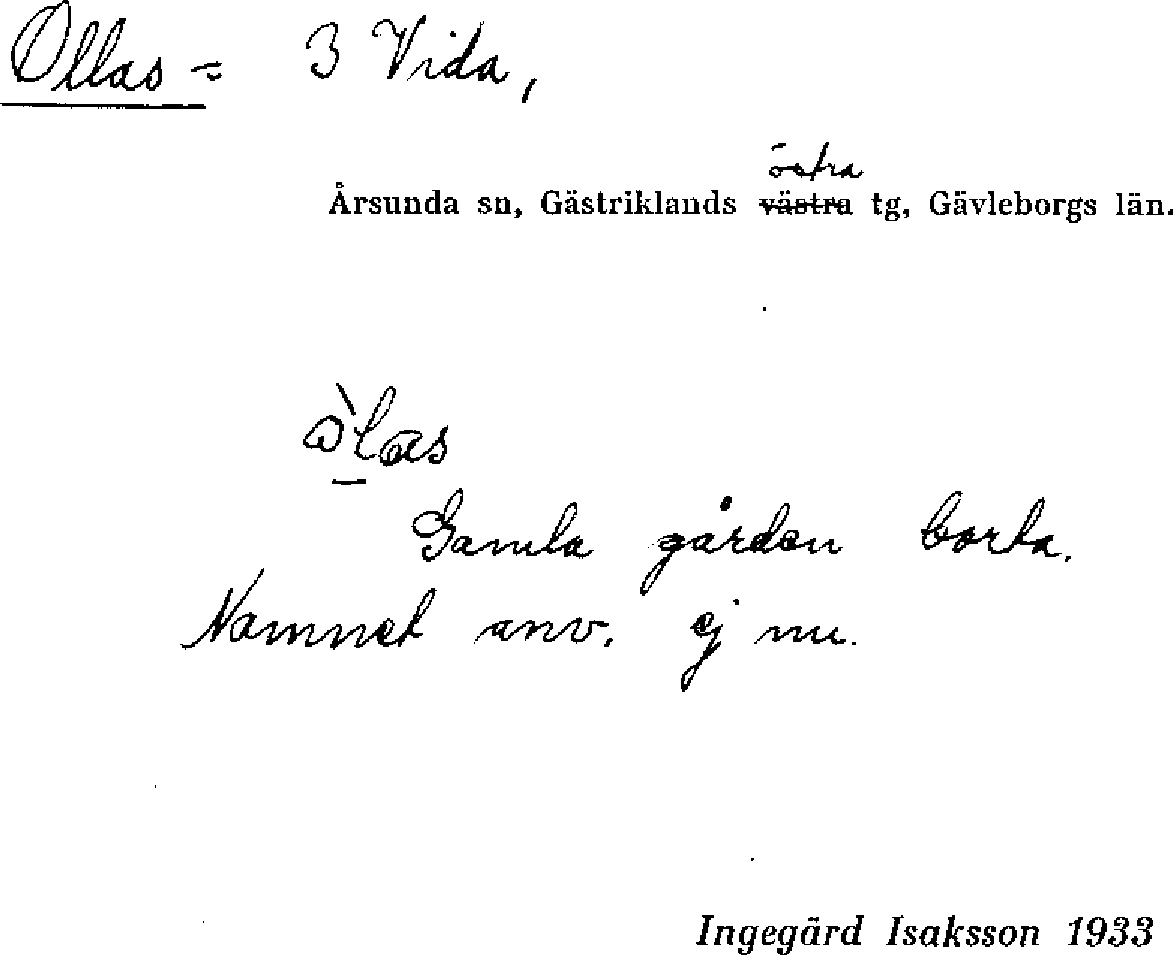 Ollas = 3 Vida,
östra
Årsunda sn, Gästriklands västra tg, Gävleborgs län.
Gamla gården borta.
Namnet anv. ej nu.
Ingegärd Isaksson 1933